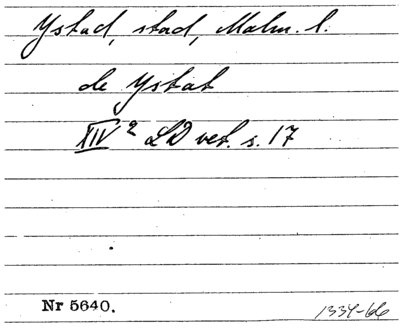 Ystad, stad, Malm. l.
de Ystat
XIV 2 LD vet. s. 17
Nr 5640.
1334-66